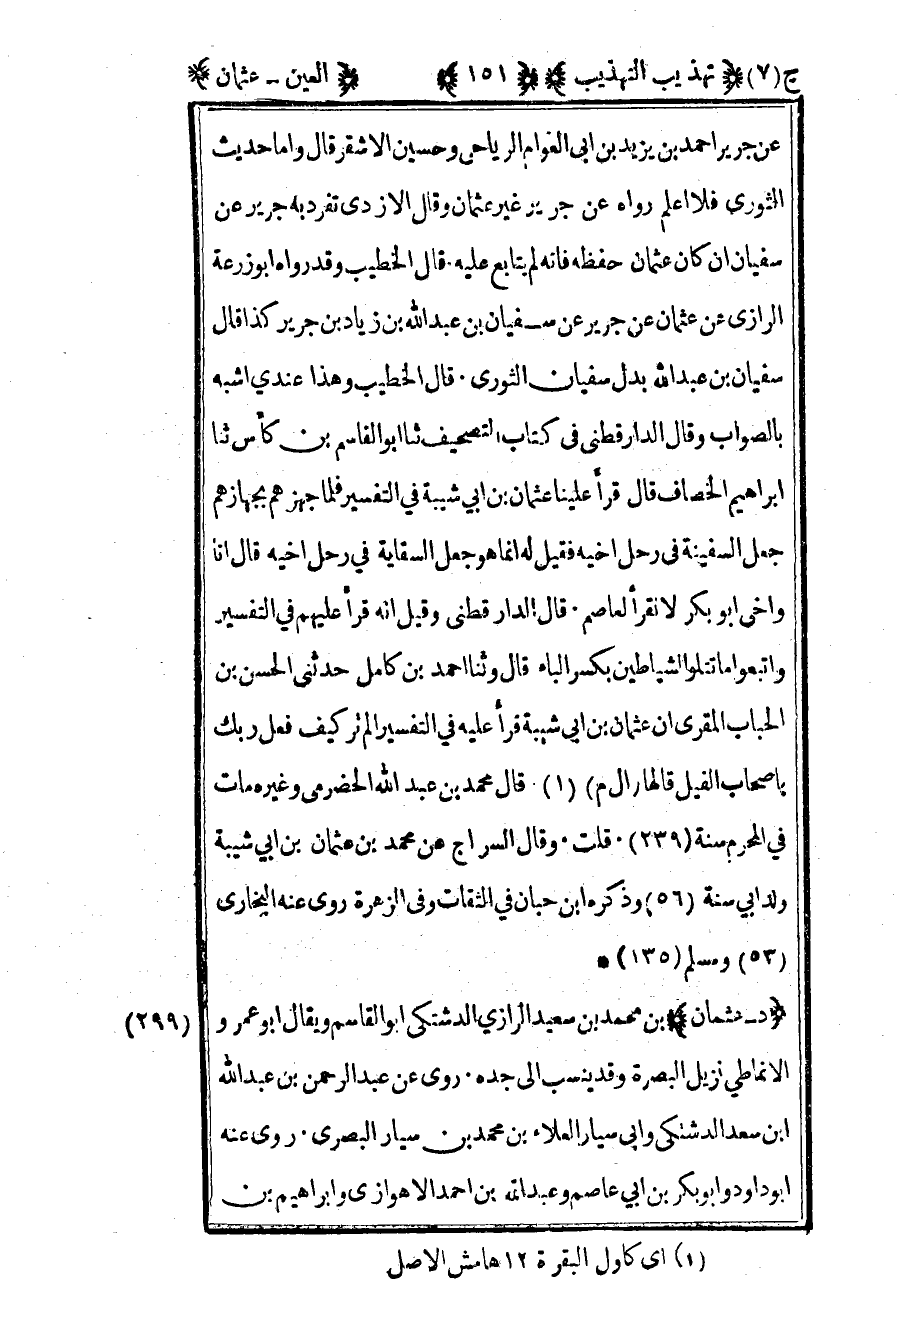 ج (٧) ﴿ تهذيب التهذيب ﴾ ﴿ ١٥١ ﴾ ﴿ العين - عثمان ﴾
عن جرير احمد بن يزيد بن ابى العوام الرياحى وحسين الاشقر قال واما حديث
الثورى فلا اعلم رواه عن جرير غير عثمان وقال الازدى تفرد به جرير عن
سفيان ان كان عثمان حفظه فانه لم يتابع عليه · قال الخطيب وقد رواه ابو زرعة
الرازى عن عثمان عن جرير عن سفيان بن عبدالله بن زياد بن جرير كذا قال
سفيان بن عبدالله بدل سفيان الثورى · قال الخطيب وهذا عندي اشبه
بالصواب وقال الدار قطنى فى كتاب التصحيف ثنا ابو القاسم بن كأس ثنا
ابراهيم الخصاف قال قرأ علينا عثمان بن ابي شيبة في التفسير فلما جهزهم بجهازهم
جعل السفينة فى رحل اخيه فقيل له انما هو جعل السقاية في رحل اخيه قال انا
واخى ابو بكر لا نقرأ لعاصم · قال الدار قطنى وقيل انه قرأ عليهم في التفسير
واتبعوا ما تتلوا الشياطين بكسر الباء قال وثنا احمد بن كامل حدثنى الحسن بن
الحباب المقرى ان عثمان بن ابي شيبة قرأ عليه في التفسير الم تر كيف فعل ربك
باصحاب الفيل قالها (ال م) (١) · قال محمد بن عبد الله الحضرمى وغيره مات
في المحرم سنة (٢٣٩) · قلت · وقال السراج عن محمد بن عثمان بن ابي شيبة
ولد ابي سنة (٥٦) وذكره ابن حبان في الثقات وفى الزهرة روى عنه البخارى
(٥٣) ومسلم (١٣٥) *
﴿ د - عثمان ﴾ بن محمد بن سعيد الرازي الدشتكى ابو القاسم ويقال ابو عمرو (٢٩٩)
الانماطي نزيل البصرة وقد ينسب الى جده · روى عن عبد الرحمن بن عبدالله
ابن سعد الدشتكى وابي سيار العلاء بن محمد بن سيار البصرى · روى عنه
ابو داود وابو بكر بن ابي عاصم وعبدالله بن احمد الاهوازى وابراهيم بن
(١) اى كاول البقرة ١٢ هامش الاصل